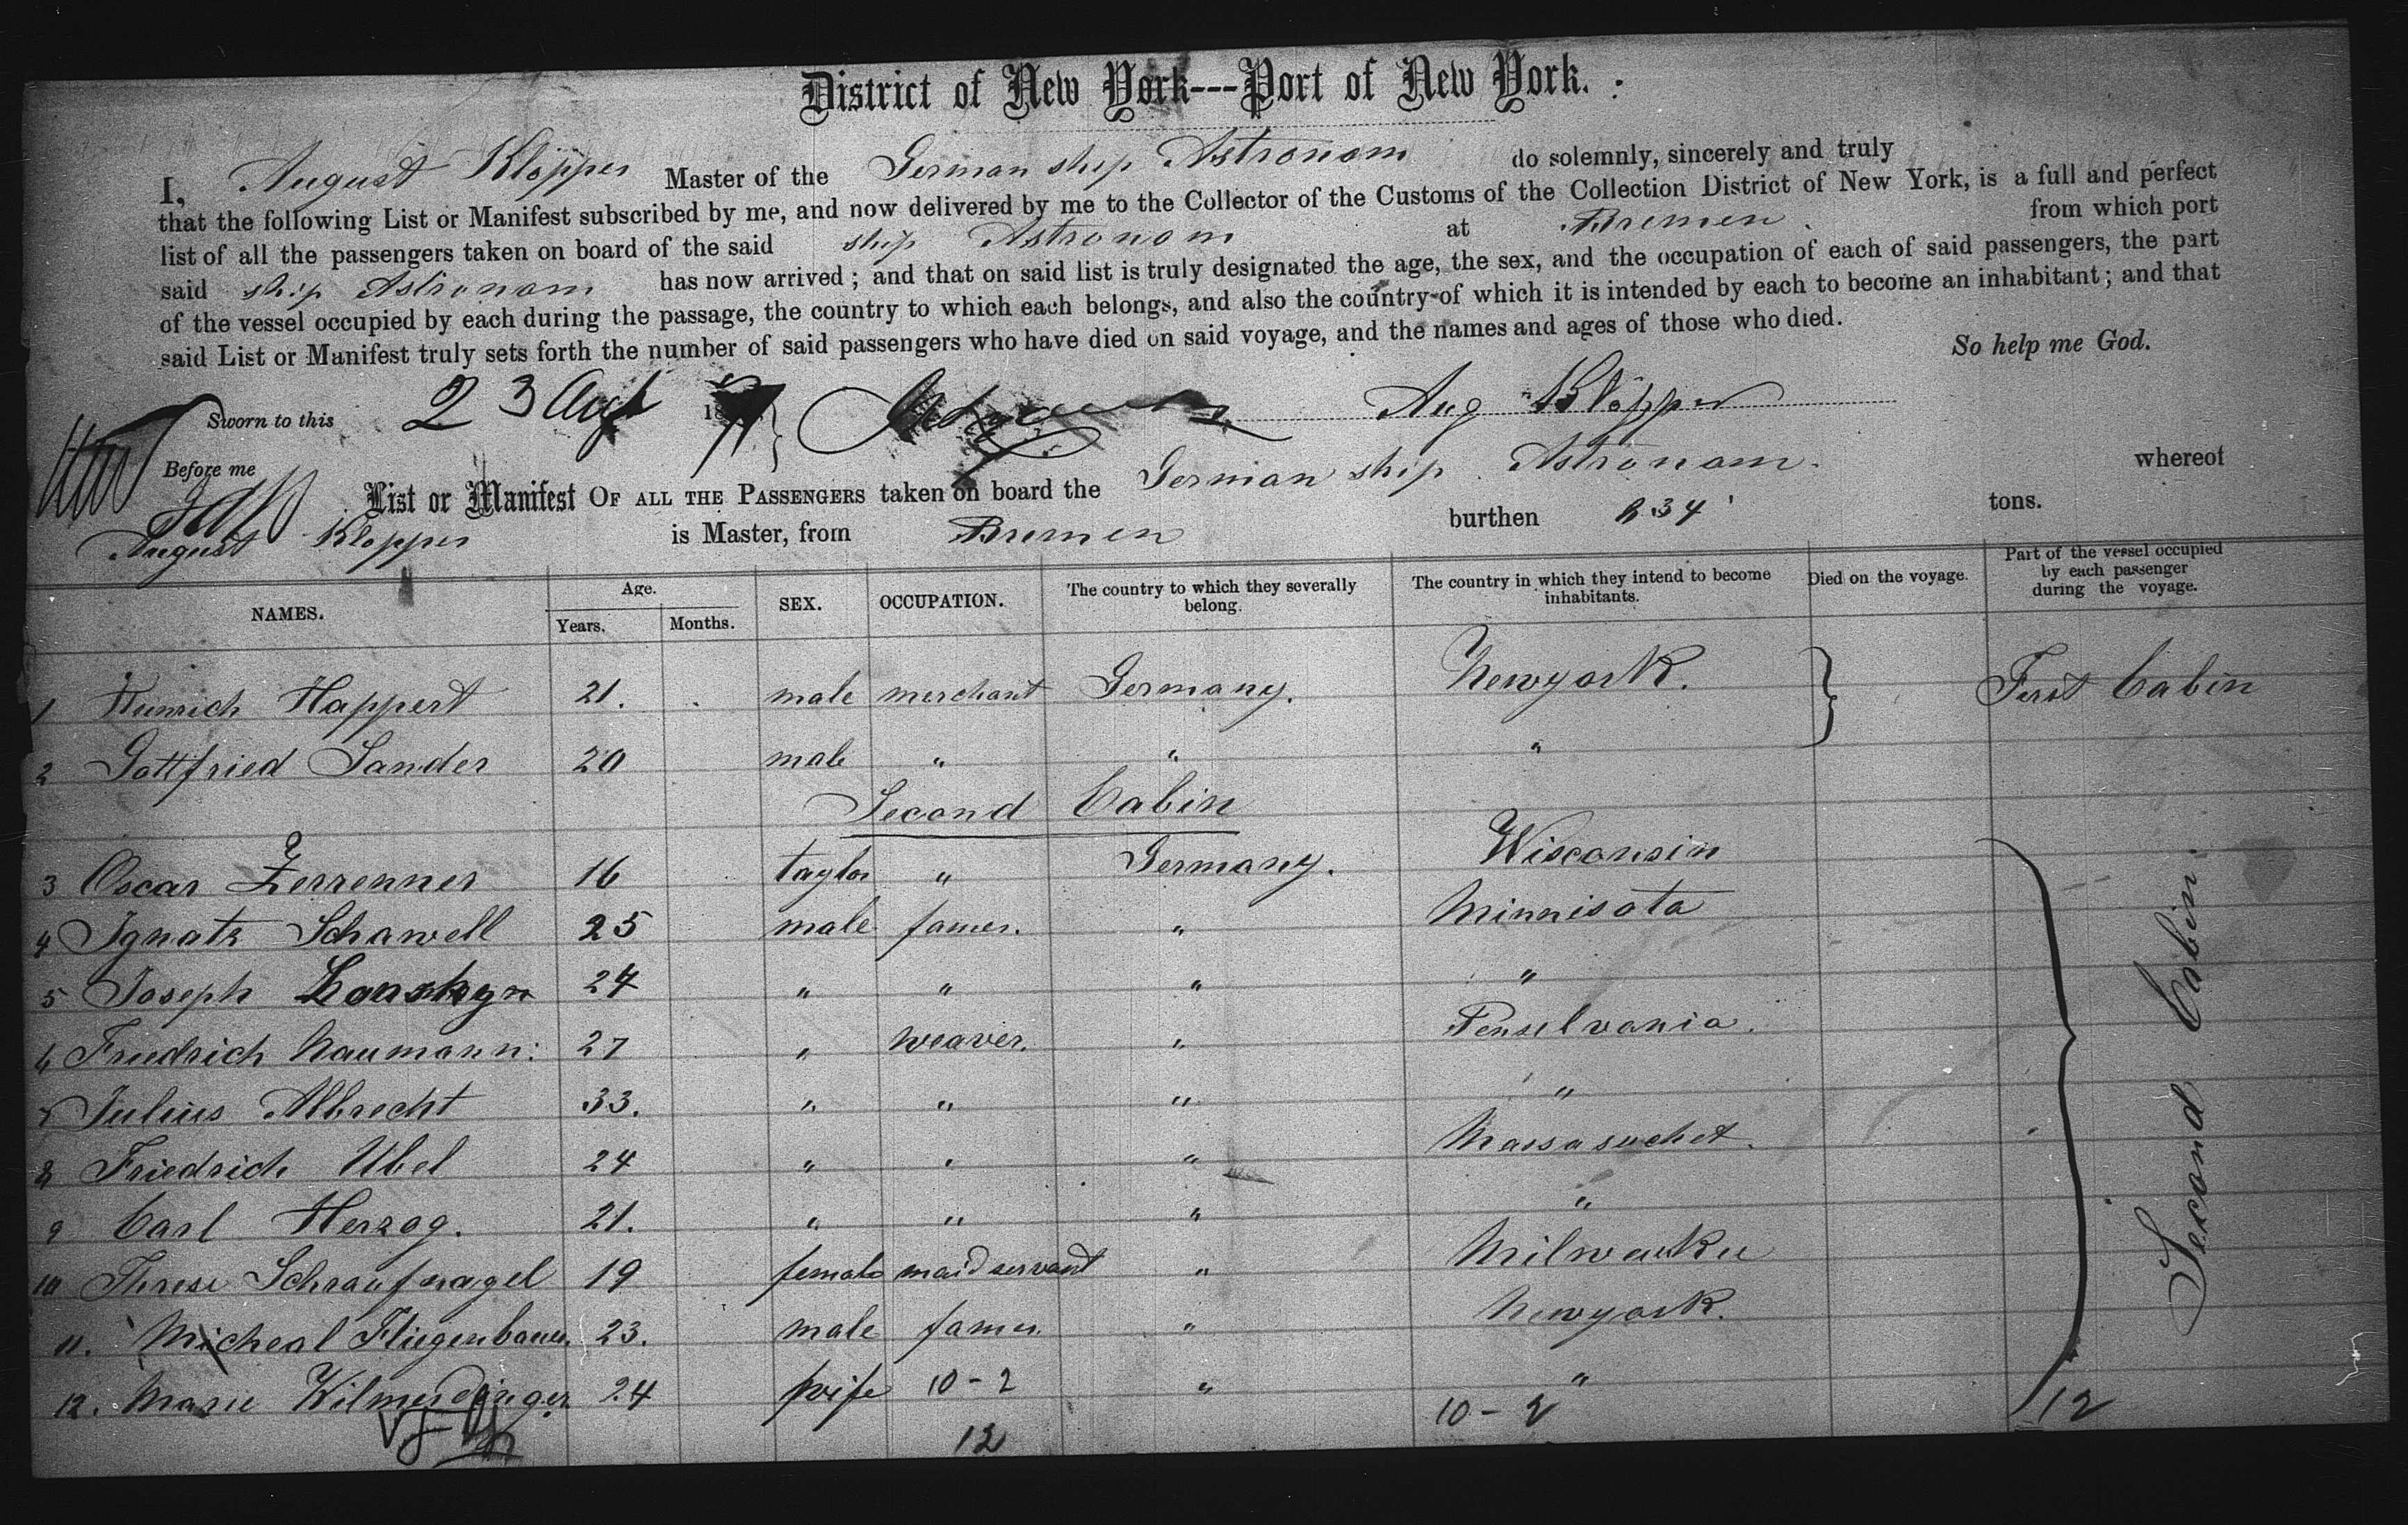 District of New York---Port of New York.
I, August Klöpper Master of the German ship Astronom do solemnly, sincerely and truly
that the following List or Manifest subscribed by me, and now delivered by me to the Collector of the Customs of the Collection District of New York, is a full and perfect
list of all the passengers taken on board of the said ship Astronom at Bremen from which port
said ship Astronom has now arrived; and that on said list is truly designated the age, the sex, and the occupation of each of said passengers, the part
of the vessel occupied by each during the passage, the country to which each belongs, and also the country of which it is intended by each to become an inhabitant; and that
said List or Manifest truly sets forth the number of said passengers who have died on said voyage, and the names and ages of those who died.
So help me God.
Sworn to this 23 Augt 18 Aug Klöpper
Before me
List or Manifest OF ALL THE PASSENGERS taken on board the German ship Astronom. whereof
August Klöpper is Master, from Bremen burthen 834 tons.
NAMES. Age. Years. Months. SEX. OCCUPATION. The country to which they severally belong. The country in which they intend to become inhabitants. Died on the voyage. Part of the vessel occupied by each passenger during the voyage.
1 Heinrich Happert 21. male merchant Germany. Newyork. First Cabin
2 Gottfried Sander 20 male " " "
Second Cabin
3 Oscar Zerrenner 16 taylor " Germany. Wisconsin
4 Ignatz Schawell 25 male famer. " Minnisota
5 Joseph 24 " " " "
6 Friedrich Naumann. 27 " weaver. " Penselvania.
7 Julius Albrecht 33. " " " "
8 Friedrich Ubel 24 " " " Massasuchet.
9 Carl Herzog. 21. " " " "
10 Threse Schraufnagel 19 female maid servant " Milwaukee
11. Micheal Fliegenbauer. 23. male famer. " Newyork.
12. Marie Wilmerdinger 24 wife 10-2 " "
Second Cabin.
10-2
12
12